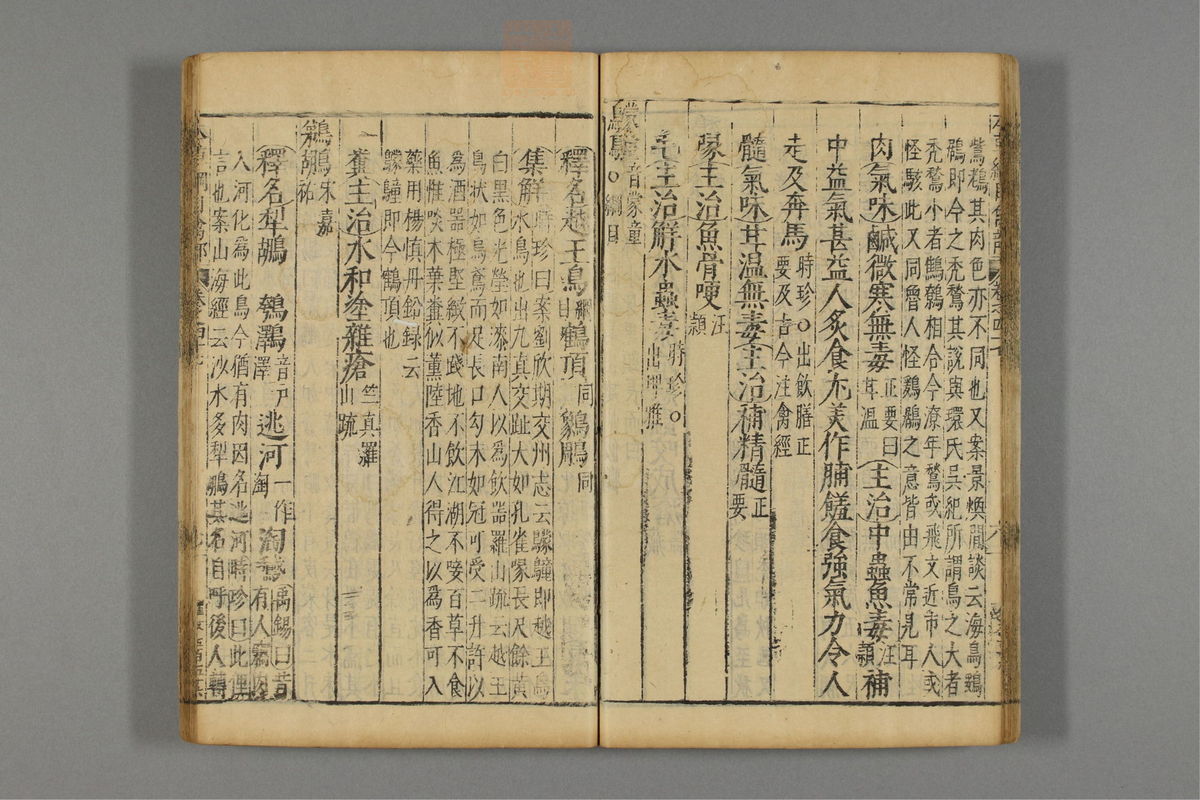 鶩鶬其肉色亦不同也又案景煥閒談云海鳥鶢
鶋即今之禿鶖其說與環氏吳紀所謂鳥之大者
禿鶖小者鶴鶉相合今潦年鶖或飛又近市人或
怪駭此又同魯人怪鶢鶋之意皆由不常見耳
肉氣味鹹微寒無毒正要曰甘溫主治中蟲魚毒汪穎補
中益氣甚益人炙食尤美作脯饈食強氣力令人
走及奔馬時珍○出飲膳正要及古今注禽經
髓氣味甘溫無毒主治補精髓正要
喙主治魚骨哽汪穎
毛主治解水蟲毒時珍○出
音蒙童○綱目
釋名越王鳥綱目鶴頂同鶴鵰同
集解時珍曰案劉欣期交州志云即越王鳥
水鳥也出九真交趾大如孔雀喙長尺餘黃
白黑色光瑩如漆南人以為飲器羅山疏云越王
鳥狀如烏鳶而足長口勾末如冠可受二升許以
為酒器極堅緻不踐地不飲江湖不唼百草不食
魚惟啖木葉糞似薰陸香山人得之以為香可入
藥用楊慎丹鉛錄云
即今鶴頂也
糞主治水和塗雜瘡竺真羅山疏
鵜鶘宋嘉祐
釋名犁鶘 鴮鸅音戶澤逃河一作淘鵝禹錫曰昔有人竊肉
入河化為此鳥今猶有肉因名逃河時珍曰此俚
言也案山海經云沙水多犁鶘其名自呼後人轉